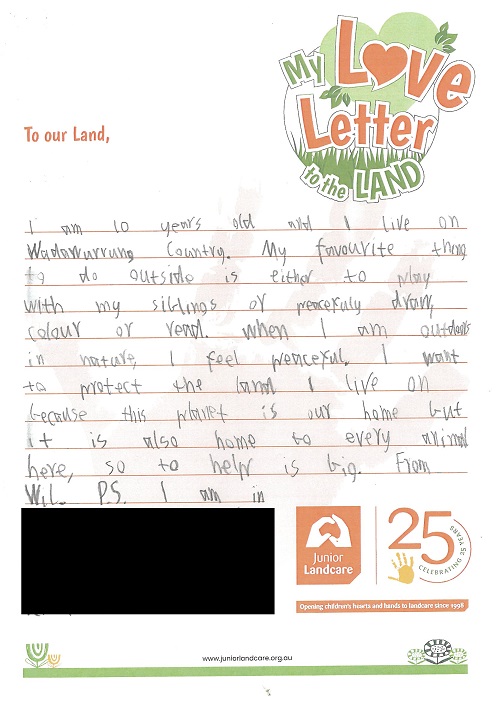 My Love
Letter
to the LAND
To our Land,
I am 10 years old and I live on
Wadarrurrung Country. My favourite thing
to do outside is either to play
with my siblings or peacefuly draw,
colour or read. when I am outdoors
in nature, I feel peaceful. I want
to protect the land I live on
because this planet is our home but
it is also home to every animal
here, so to help is big. From
Wil. P.S. I am in
Junior
Landcare
25
CELEBRATING 25 YEARS
Opening children's hearts and hands to landcare since 1998
www.juniorlandcare.org.au